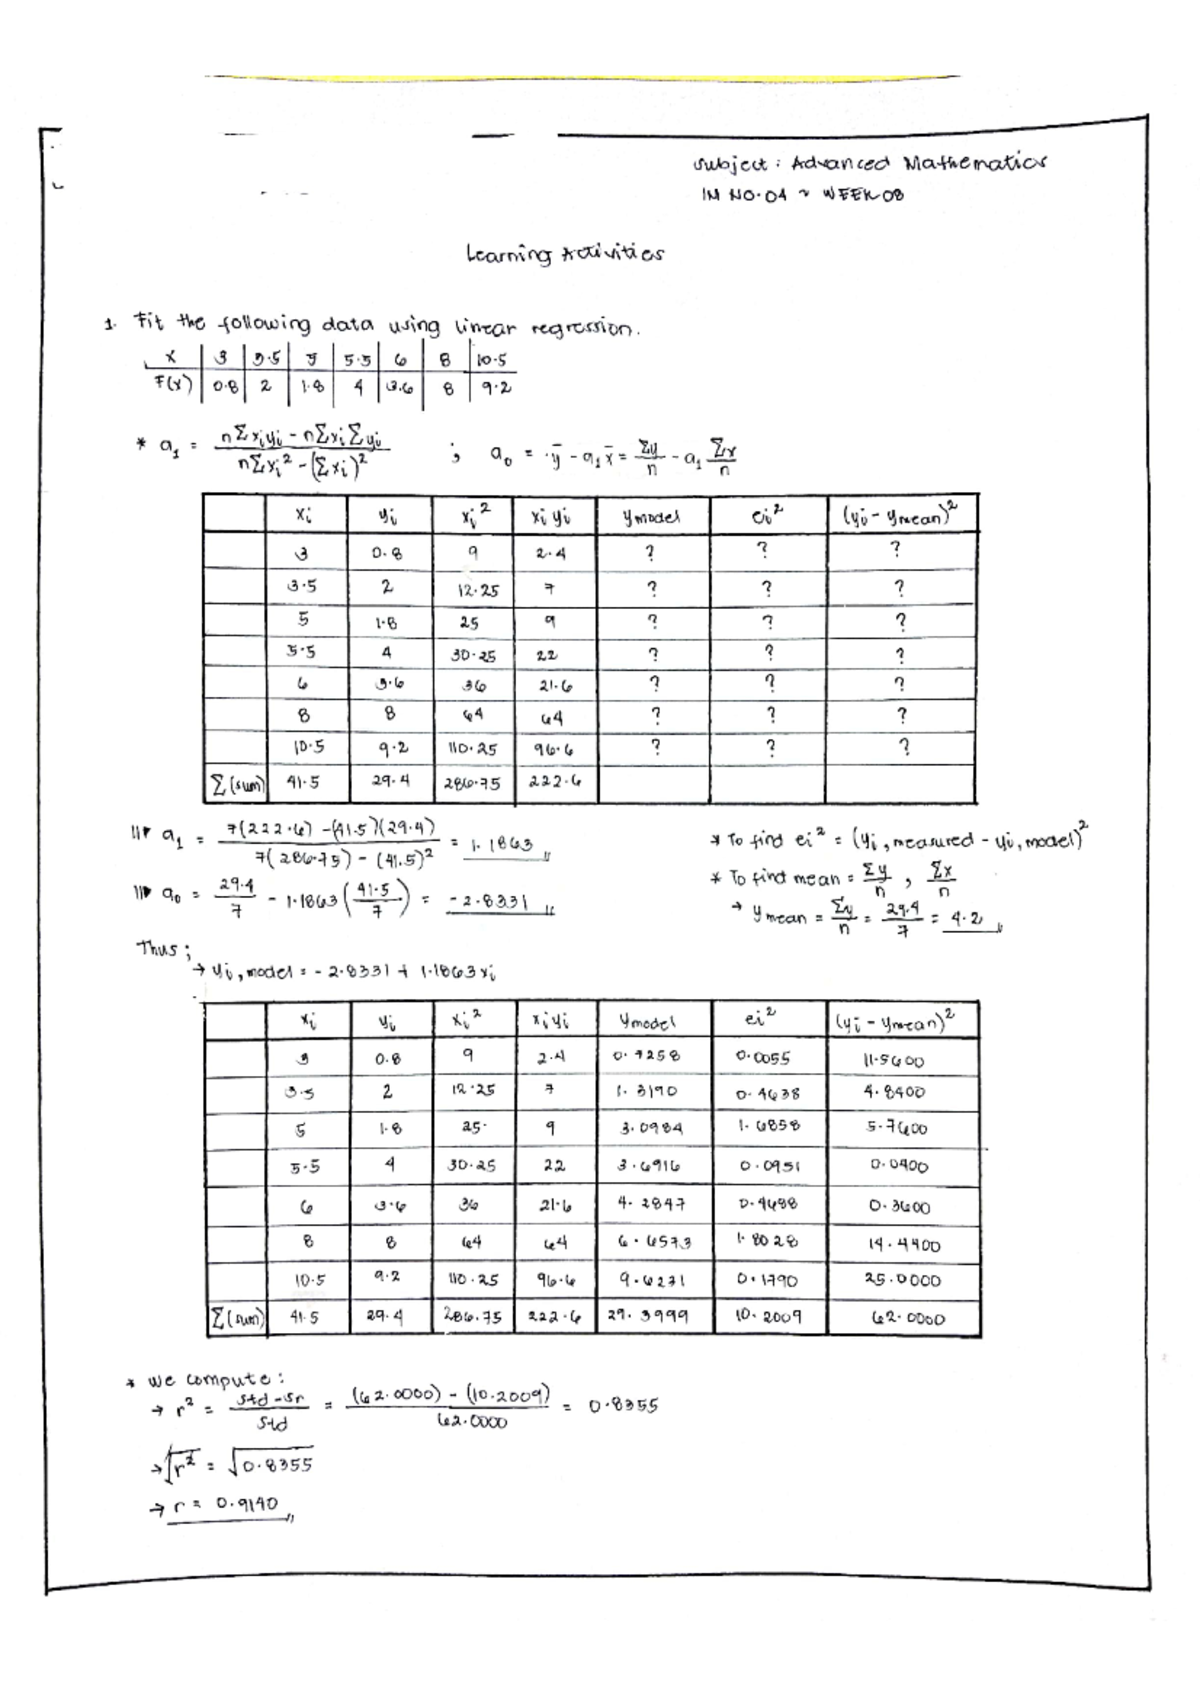 Subject: Advanced Mathematics
IM NO.04 ~ WEEK 08
Learning Activities
1. Fit the following data using linear regression.
x | 3 | 3.5 | 5 | 5.5 | 6 | 8 | 10.5
F(x) | 0.8 | 2 | 1.8 | 4 | 3.6 | 8 | 9.2
* a₁ = (nΣxᵢyᵢ - nΣxᵢΣyᵢ) / (nΣxᵢ² - (Σxᵢ)²) ; a₀ = ȳ - a₁x̄ = Σy/n - a₁ Σx/n
xᵢ | yᵢ | xᵢ² | xᵢyᵢ | ymodel | eᵢ² | (yᵢ - ymean)²
3 | 0.8 | 9 | 2.4 | ? | ? | ?
3.5 | 2 | 12.25 | 7 | ? | ? | ?
5 | 1.8 | 25 | 9 | ? | ? | ?
5.5 | 4 | 30.25 | 22 | ? | ? | ?
6 | 3.6 | 36 | 21.6 | ? | ? | ?
8 | 8 | 64 | 64 | ? | ? | ?
10.5 | 9.2 | 110.25 | 96.6 | ? | ? | ?
Σ(sum) | 41.5 | 29.4 | 286.75 | 222.6
a₁ = (7(222.6) - (41.5)(29.4)) / (7(286.75) - (41.5)²) = 1.1863
a₀ = 29.4/7 - 1.1863(41.5/7) = -2.8331
* To find eᵢ² = (yᵢ, measured - yᵢ, model)²
* To find mean = Σy/n , Σx/n
→ ymean = Σy/n = 29.4/7 = 4.2
Thus;
→ yᵢ, model = -2.8331 + 1.1863xᵢ
xᵢ | yᵢ | xᵢ² | xᵢyᵢ | ymodel | eᵢ² | (yᵢ - ymean)²
3 | 0.8 | 9 | 2.4 | 0.7258 | 0.0055 | 11.5600
3.5 | 2 | 12.25 | 7 | 1.3190 | 0.4638 | 4.8400
5 | 1.8 | 25. | 9 | 3.0984 | 1.6858 | 5.7600
5.5 | 4 | 30.25 | 22 | 3.6916 | 0.0951 | 0.0400
6 | 3.6 | 36 | 21.6 | 4.2847 | 0.4688 | 0.3600
8 | 8 | 64 | 64 | 6.6573 | 1.8028 | 14.4400
10.5 | 9.2 | 110.25 | 96.6 | 9.6231 | 0.1790 | 25.0000
Σ(sum) | 41.5 | 29.4 | 286.75 | 222.6 | 29.3999 | 10.2009 | 62.0000
* We compute:
→ r² = (Std - Sr) / Std = ((62.0000) - (10.2009)) / 62.0000 = 0.8355
→ √r² = √0.8355
→ r = 0.9140